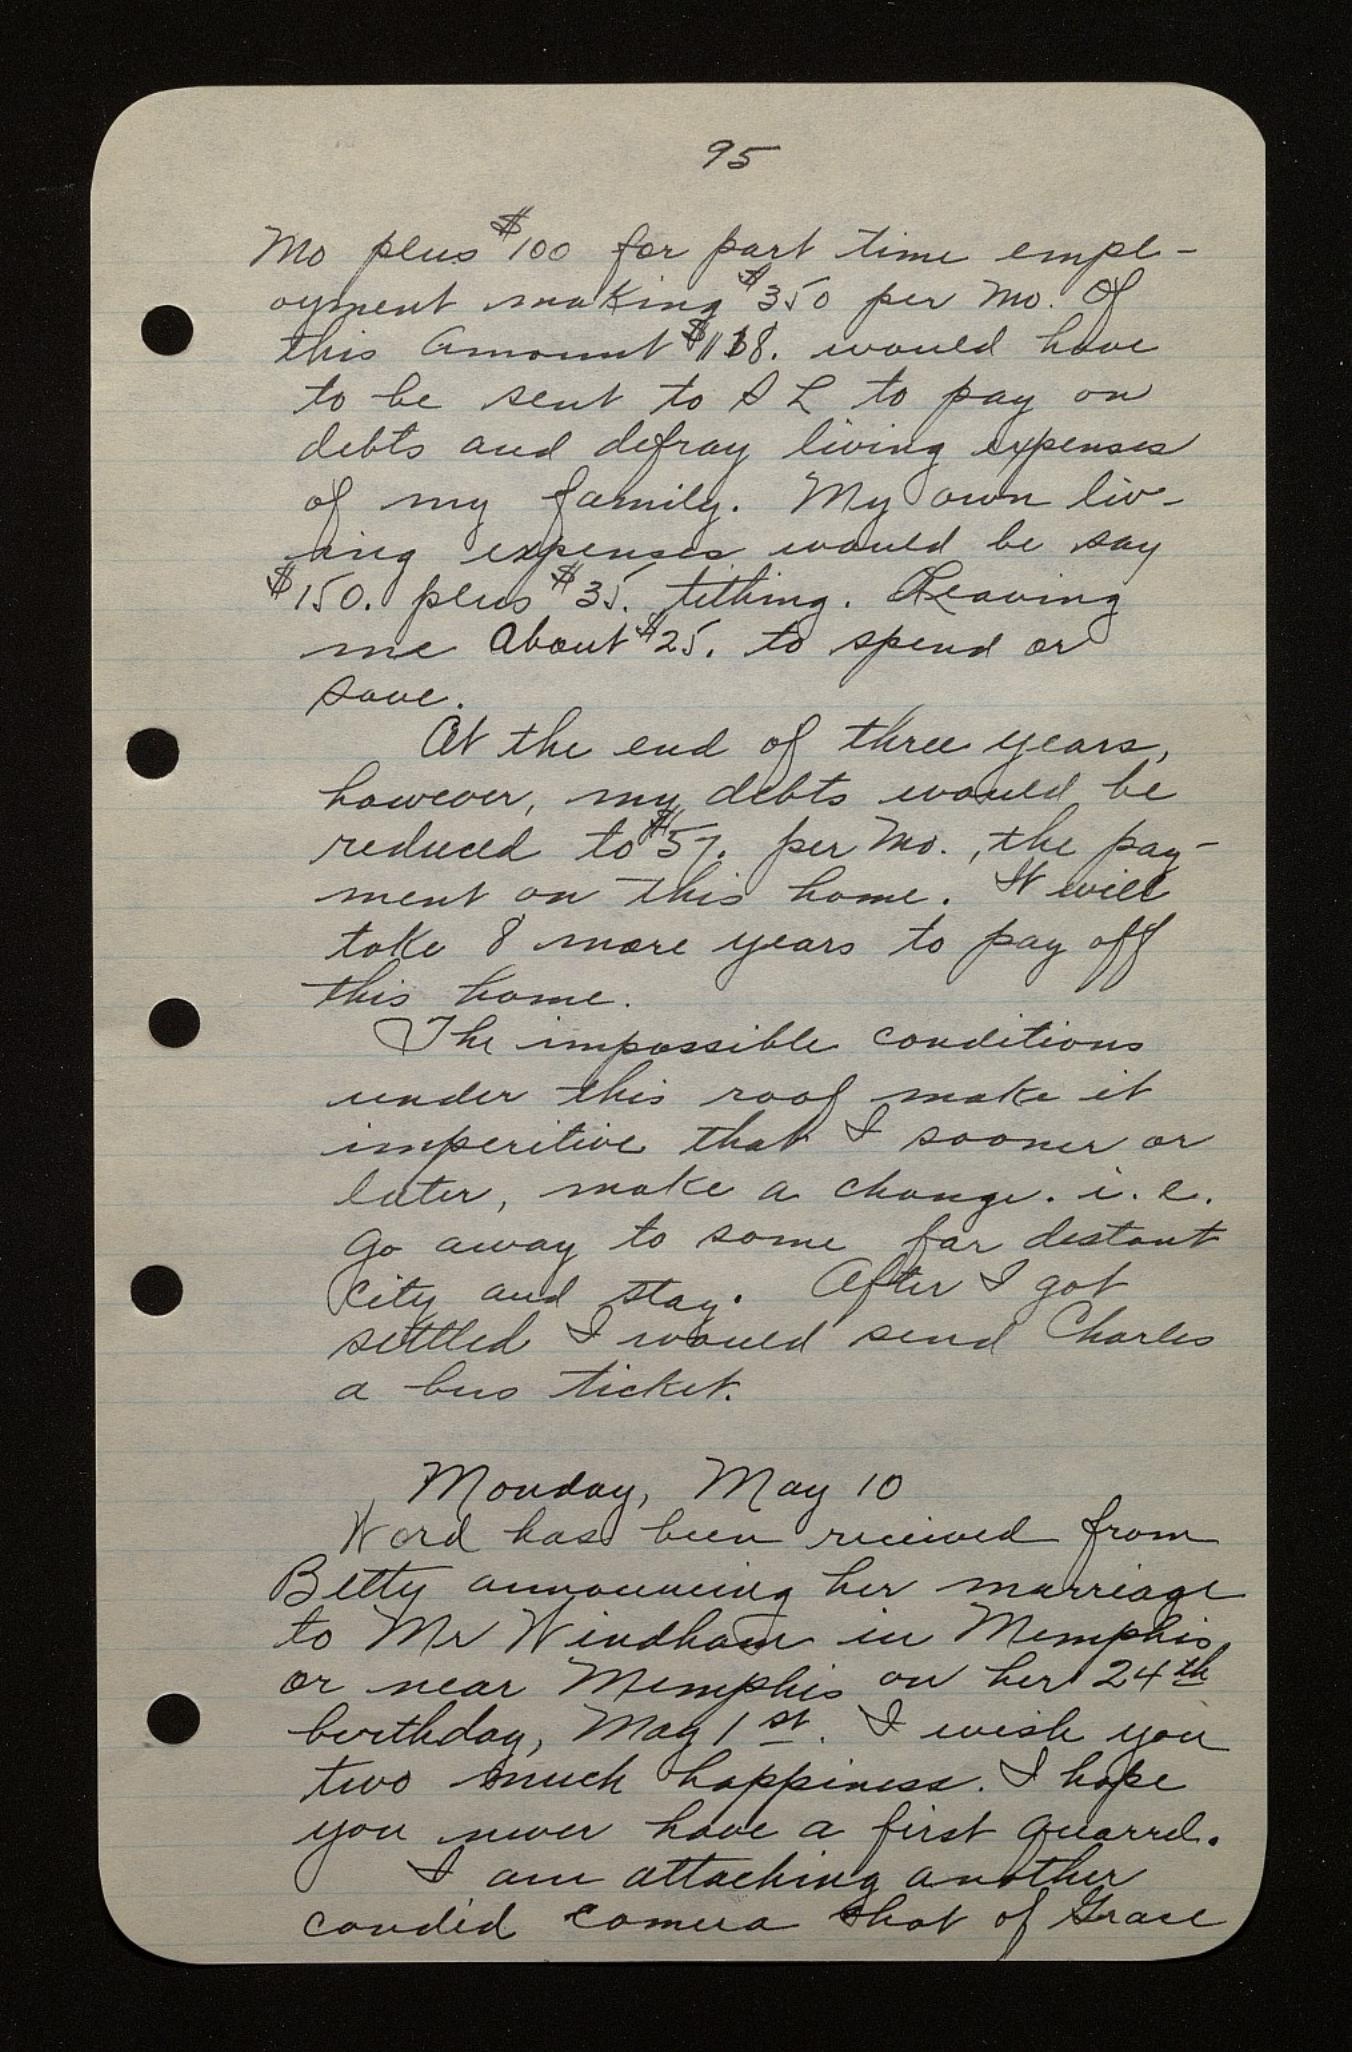 95
Mo plus $100 for part time empl-
oyment making $350 per Mo. Of
this amount $118. would have
to be sent to S L to pay on
debts and defray living expenses
of my family. My own liv-
ing expenses would be say
$150. plus $35. tithing. Leaving
me about $25. to spend or
save.
At the end of three years,
however, my debts would be
reduced to $57. per Mo., the pay-
ment on this home. It will
take 8 more years to pay off
this home.
The impossible conditions
under this roof make it
imperitive that I sooner or
later, make a change. i.e.
go away to some far distant
city and stay. After I got
settled I would send Charles
a bus ticket.
Monday, May 10
Word has been received from
Betty announcing her marriage
to Mr Windham in Memphis,
or near Memphis on her 24th
birthday, May 1st. I wish you
two much happiness. I hope
you never have a first quarrel.
I am attaching another
candid camera shot of Grace